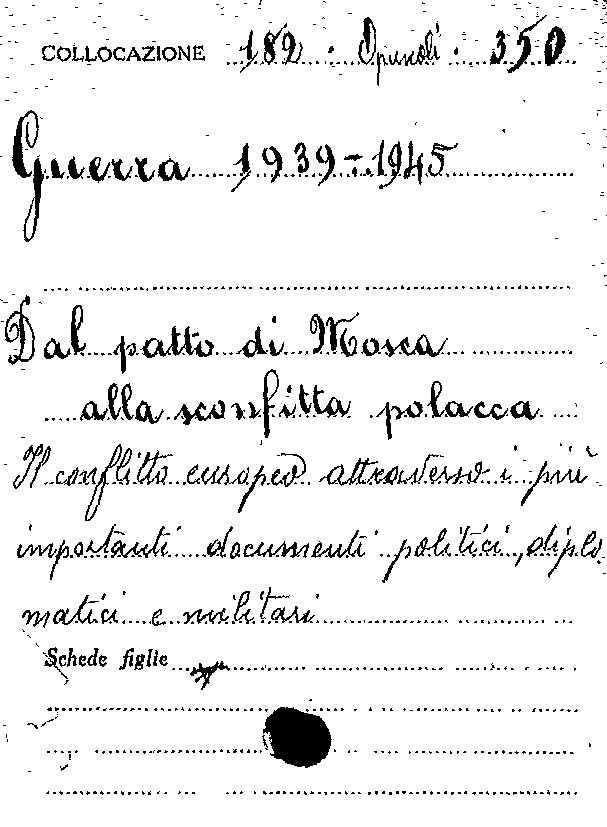 COLLOCAZIONE 182. Opuscoli. 350
Guerra 1939-1945
Dal patto di Mosca
alla sconfitta polacca
Il conflitto europeo attraverso i più
importanti documenti politici, diplo
matici e militari
Schede figlie